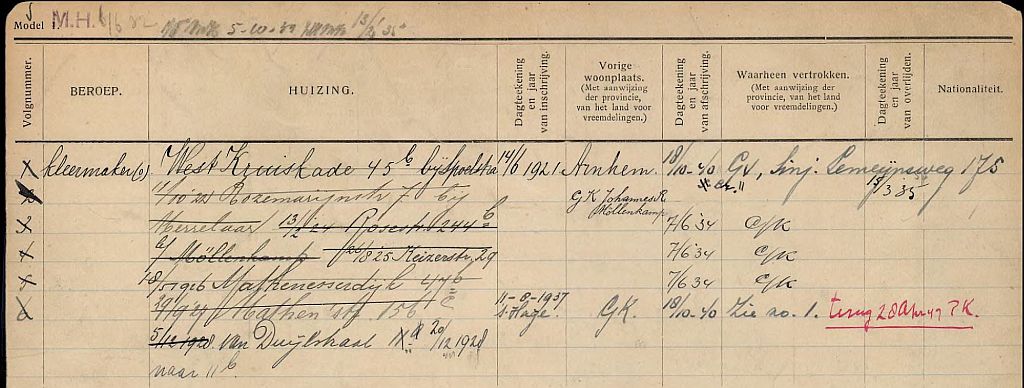 Model 1.
M.H.
5-10-
Volgnummer.
BEROEP.
HUIZING.
Dagteekening en jaar van inschrijving.
Vorige woonplaats. (Met aanwijzing der provincie, van het land voor vreemdelingen.)
Dagteekening en jaar van afschrijving.
Waarheen vertrokken. (Met aanwijzing der provincie, van het land voor vreemdelingen.)
Dagteekening en jaar van overlijden.
Nationaliteit.
kleermaker(s) West Kruiskade 45 b bij 14/6 1921 Arnhem. 18/10-40 GK, Sinj. Lemeijnsweg 175
Rozemarijnstr 7 bij G.K Johannes R. Möllenkamp
Merrelaar 13/2 24 Rosestr. 244 b 7/6 '34 c/K
b/ Möllenkamp 26/8 25 Keizerstr. 29 7/6 34 c/K
18/5 1926 Mathenesserdijk 446 7/6 34 c/K
29/9 '27 Mathen'str. 156 c 11-8-1937 s-Hage G.K. 18/10-40 Zie no. 1. terug
5/12 1928. van Duijlstraat 20/12 1928
naar 11 b